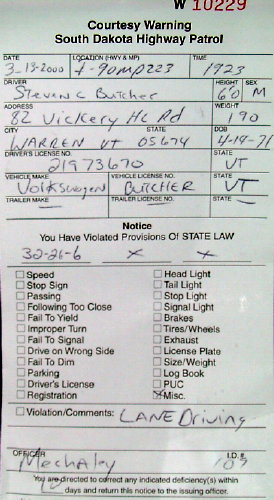 W 10229
Courtesy Warning
South Dakota Highway Patrol
DATE LOCATION (HWY & MP) TIME
3-19-2000 I-90MP223 1923
DRIVER HEIGHT SEX
Steven C Butcher 6'0 M
ADDRESS WEIGHT
82 Vickery HL Rd 190
CITY STATE DOB
WARREN VT 05674 4-19-71
DRIVER'S LICENSE NO. STATE
21973670 VT
VEHICLE MAKE VEHICLE LICENSE NO. STATE
Volkswagen BUTCHER VT
TRAILER MAKE TRAILER LICENSE NO. STATE
Notice
You Have Violated Provisions Of STATE LAW
32-26-6 x x
Speed Head Light
Stop Sign Tail Light
Passing Stop Light
Following Too Close Signal Light
Fail To Yield Brakes
Improper Turn Tires/Wheels
Fail To Signal Exhaust
Drive on Wrong Side License Plate
Fail To Dim Size/Weight
Parking Log Book
Driver's License PUC
Registration Misc.
Violation/Comments: LANE Driving
OFFICER I.D. #
Mechaley 107
You are directed to correct any indicated deficiency(s) within
days and return this notice to the issuing officer.